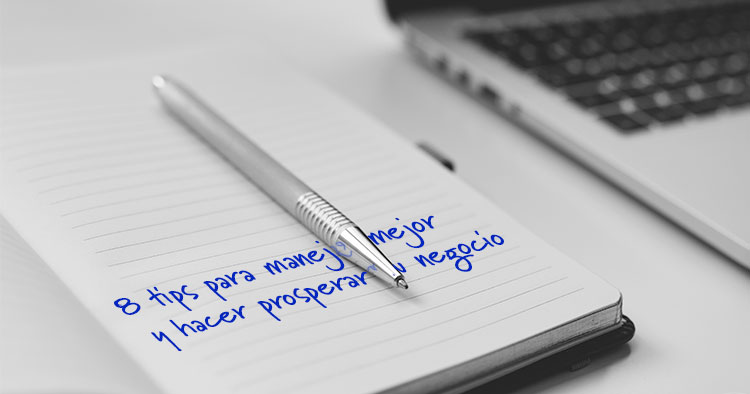 8 tips para manejar mejor
y hacer prosperar negocio